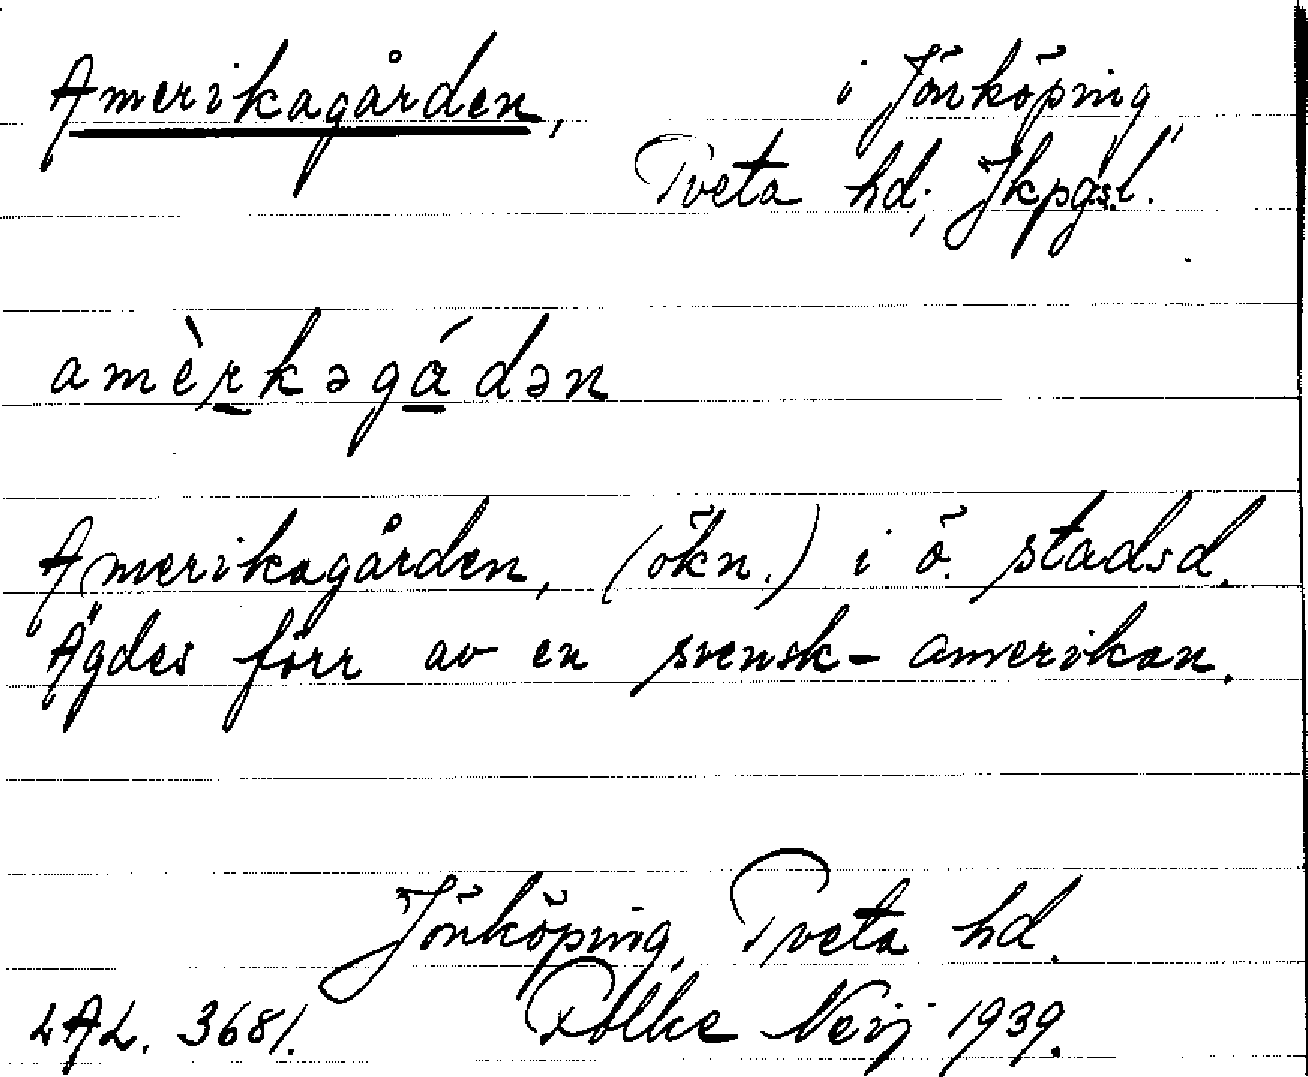 Amerikagården, i Jönköping,
Tveta hd; Jkpgsl.
amèrkəgádən
Amerikagården, (ökn.) i ö. stadsd.
Ägdes förr av en svensk-amerikan.
Jönköping, Tveta hd.
LAL. 3681. Folke Neij 1939.